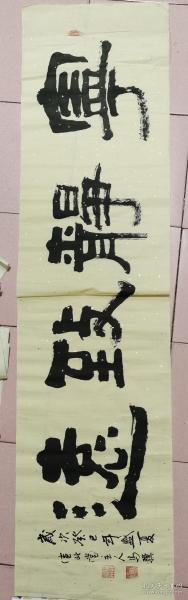 寧靜致遠
歲次癸巳年盛夏
主人